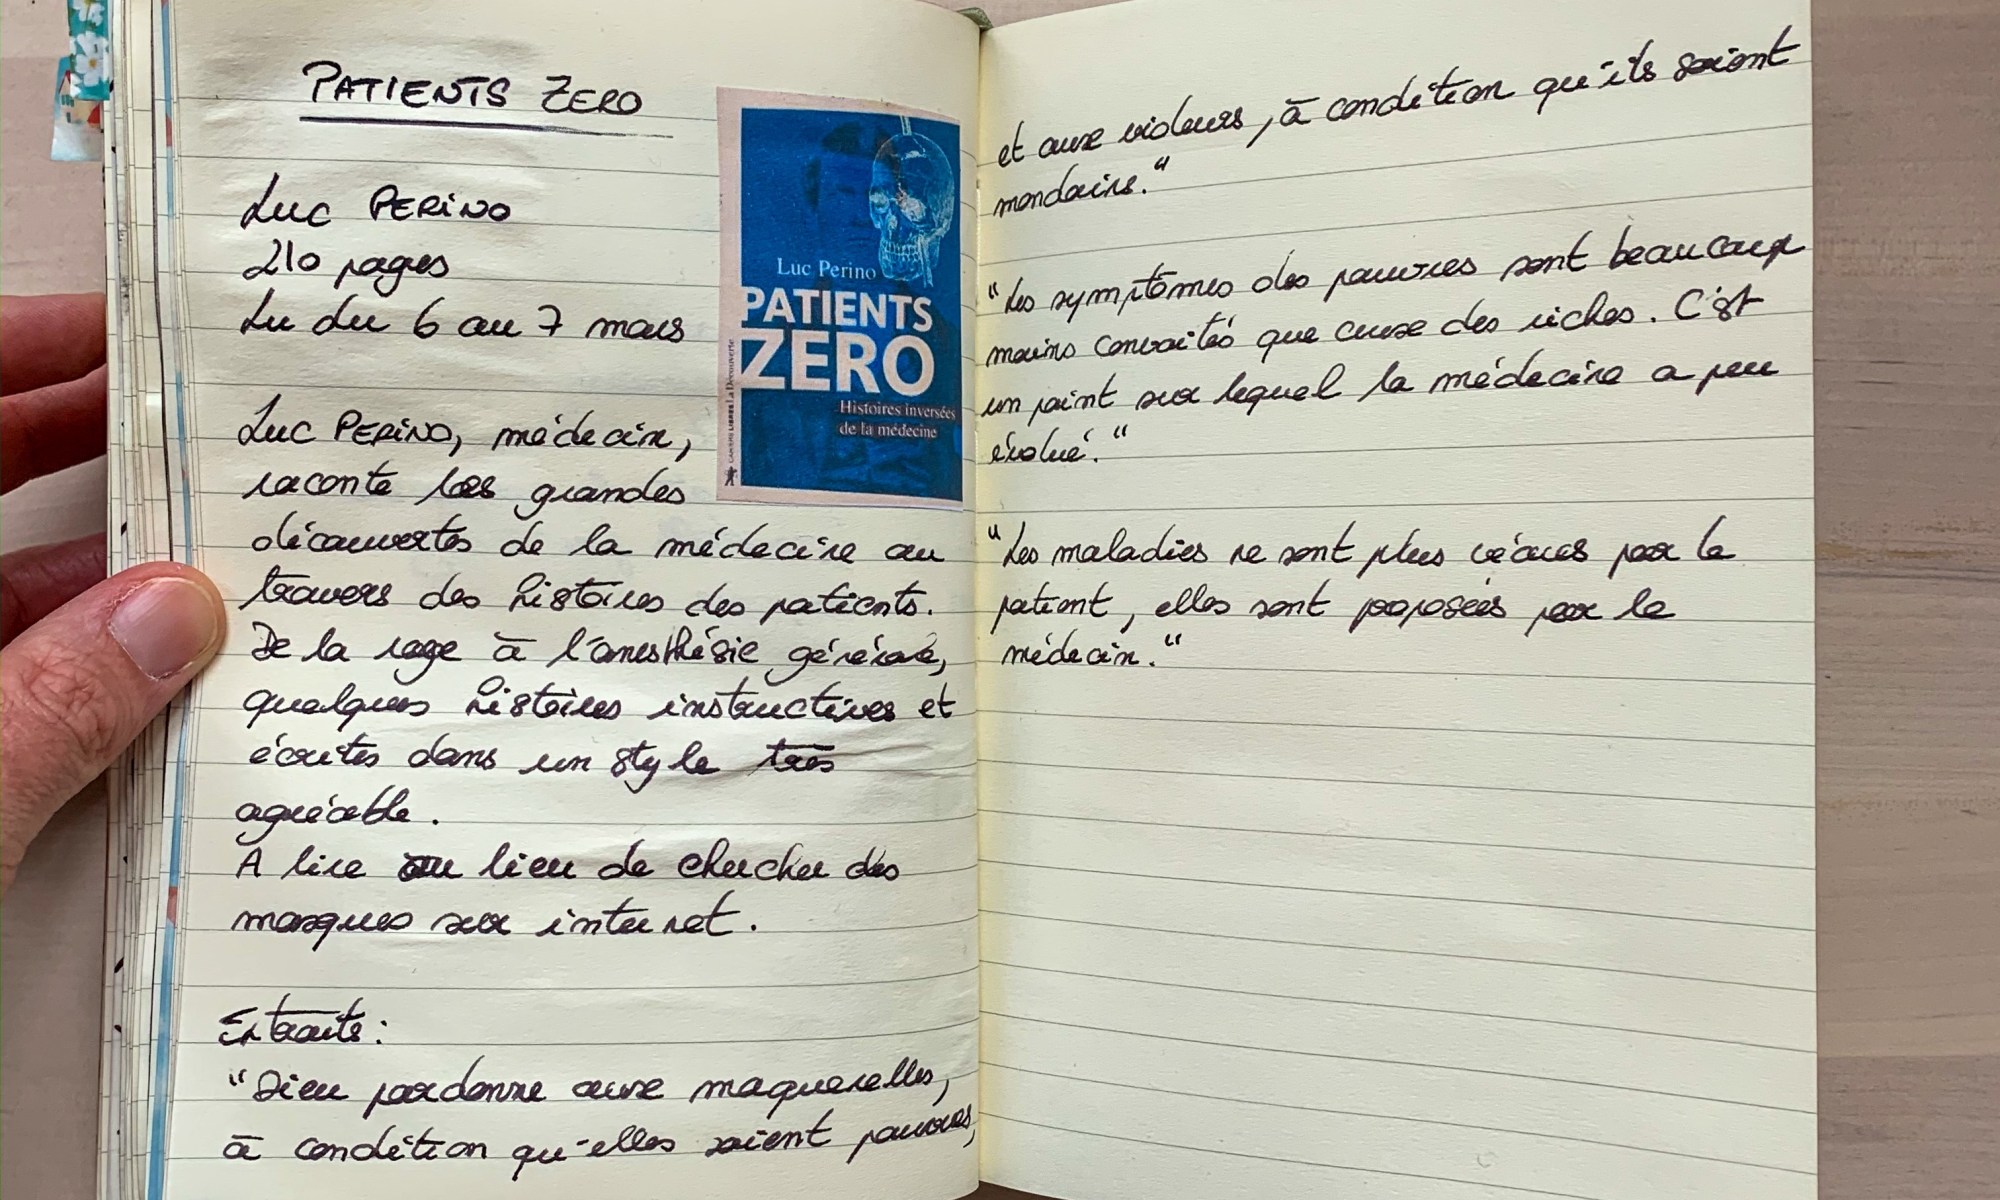 PATIENTS ZERO
Luc PERINO
210 pages
Lu du 6 au 7 mars
Luc PERINO, médecin,
raconte les grandes
découvertes de la médecine au
travers des histoires des patients.
De la rage à l'anesthésie générale,
quelques histoires instructives et
écrites dans un style très
agréable.
A lire au lieu de chercher des
masques sur internet.
Extraits :
"Dieu pardonne aux maquerelles,
à condition qu'elles soient pauvres,
Luc Perino
PATIENTS
ZERO
Histoires inversées
de la médecine
CAHIERS LIBRES La Découverte
et aux violeurs, à condition qu'ils soient
mondains."
"Les symptômes des pauvres sont beaucoup
moins convoités que ceux des riches. C'est
un point sur lequel la médecine a peu
évolué."
"Les maladies ne sont plus vécues par le
patient, elles sont proposées par le
médecin."